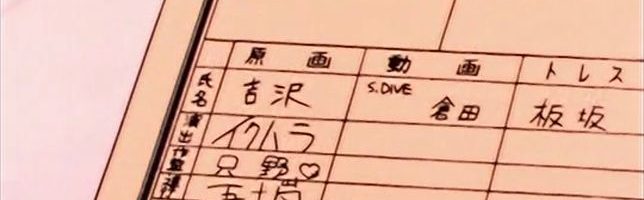 原画 動画 トレス
氏名 吉沢 S.DIVE 倉田 板坂
演出 イクハラ
作監 只野♡